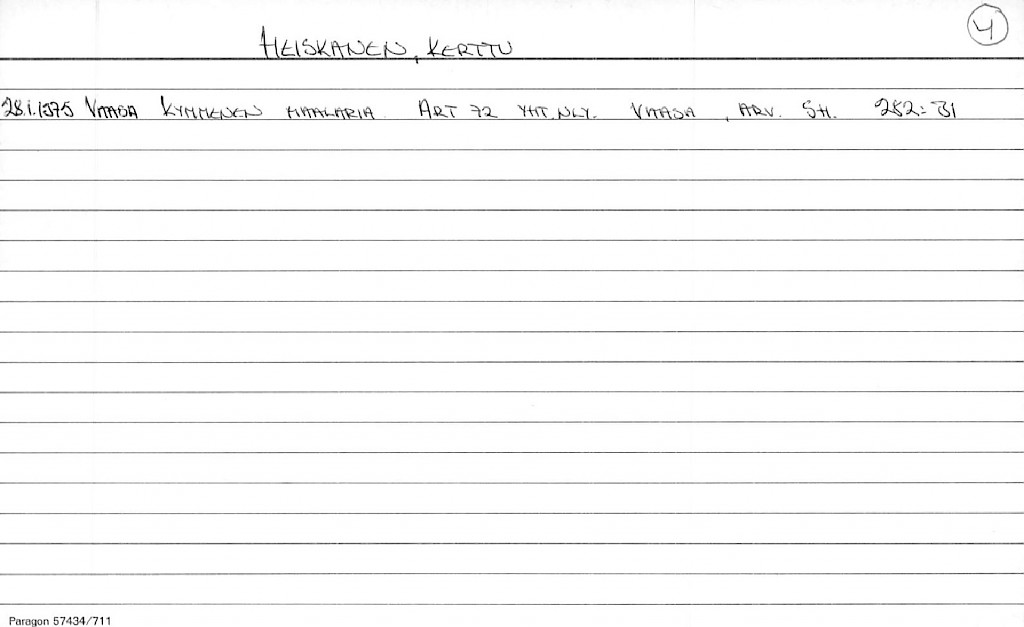 4
HEISKANEN, KERTTU
28.1.1975 VAASA KYMMENEN MAALARIA. ART 72 YHT.NLY. VAASA, ARV. SH. 282:31
Paragon 57434/711